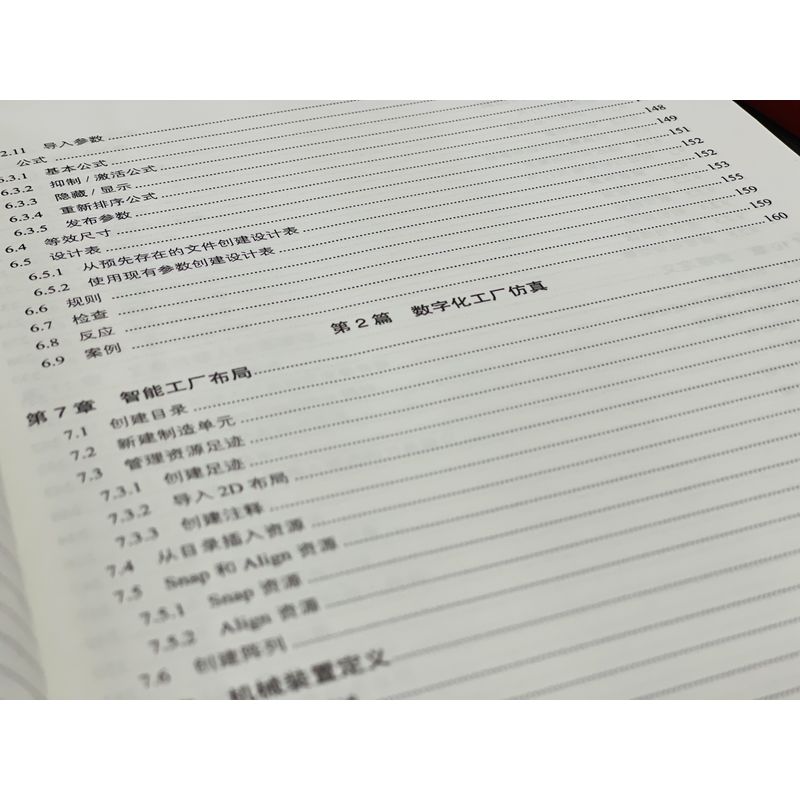 2.11 导入参数
公式
6.3.1 基本公式
6.3.2 抑制/激活公式
6.3.3 隐藏/显示
6.3.4 重新排序公式 148
6.3.5 发布参数 149
6.4 等效尺寸 151
6.5 设计表 152
6.5.1 从预先存在的文件创建设计表 152
6.5.2 使用现有参数创建设计表 153
6.6 规则 155
6.7 检查 159
6.8 反应 159
6.9 案例 160
第2篇 数字化工厂仿真
第7章 智能工厂布局
7.1 创建目录
7.2 新建制造单元
7.3 管理资源足迹
7.3.1 创建足迹
7.3.2 导入2D布局
7.3.3 创建注释
7.4 从目录插入资源
7.5 Snap 和 Align 资源
7.5.1 Snap 资源
7.5.2 Align 资源
7.6 创建阵列
机械装置定义